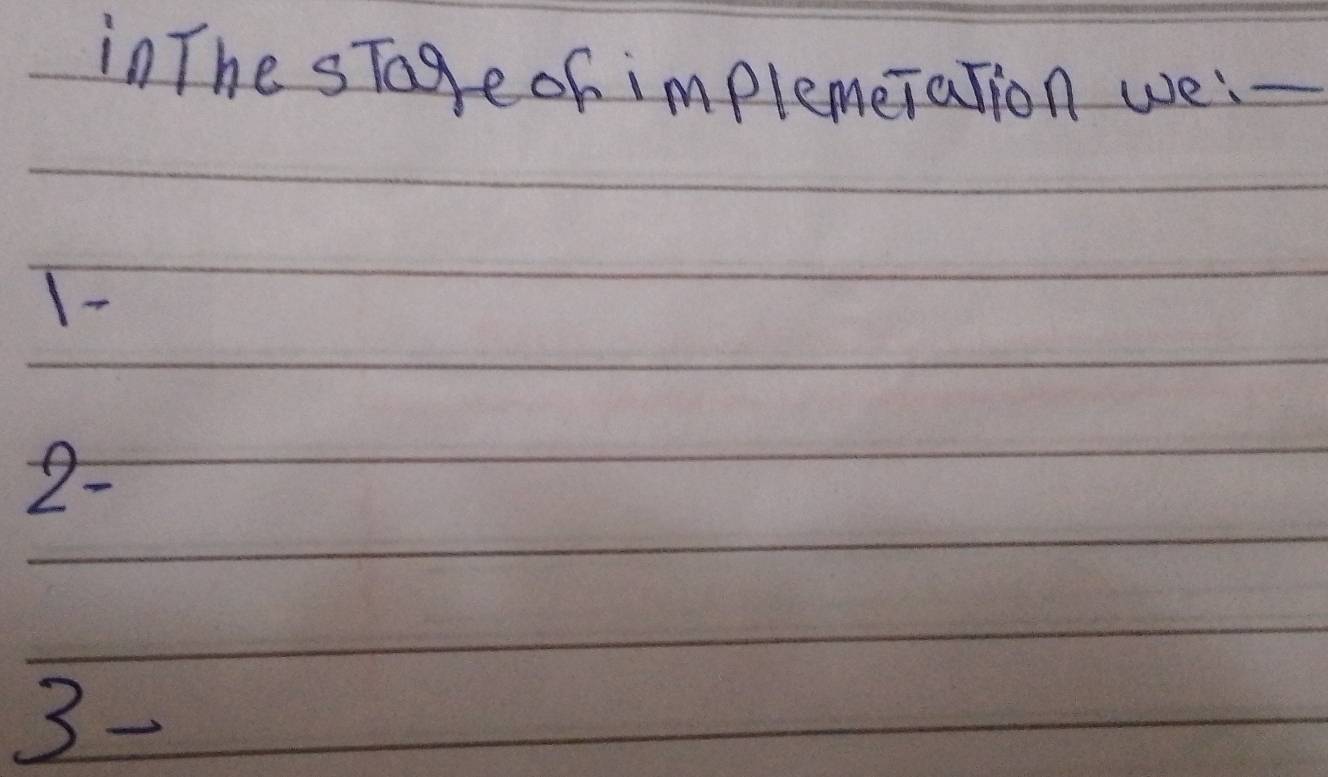 in The sTage of implemeTaTion we:-
1-
2-
3-